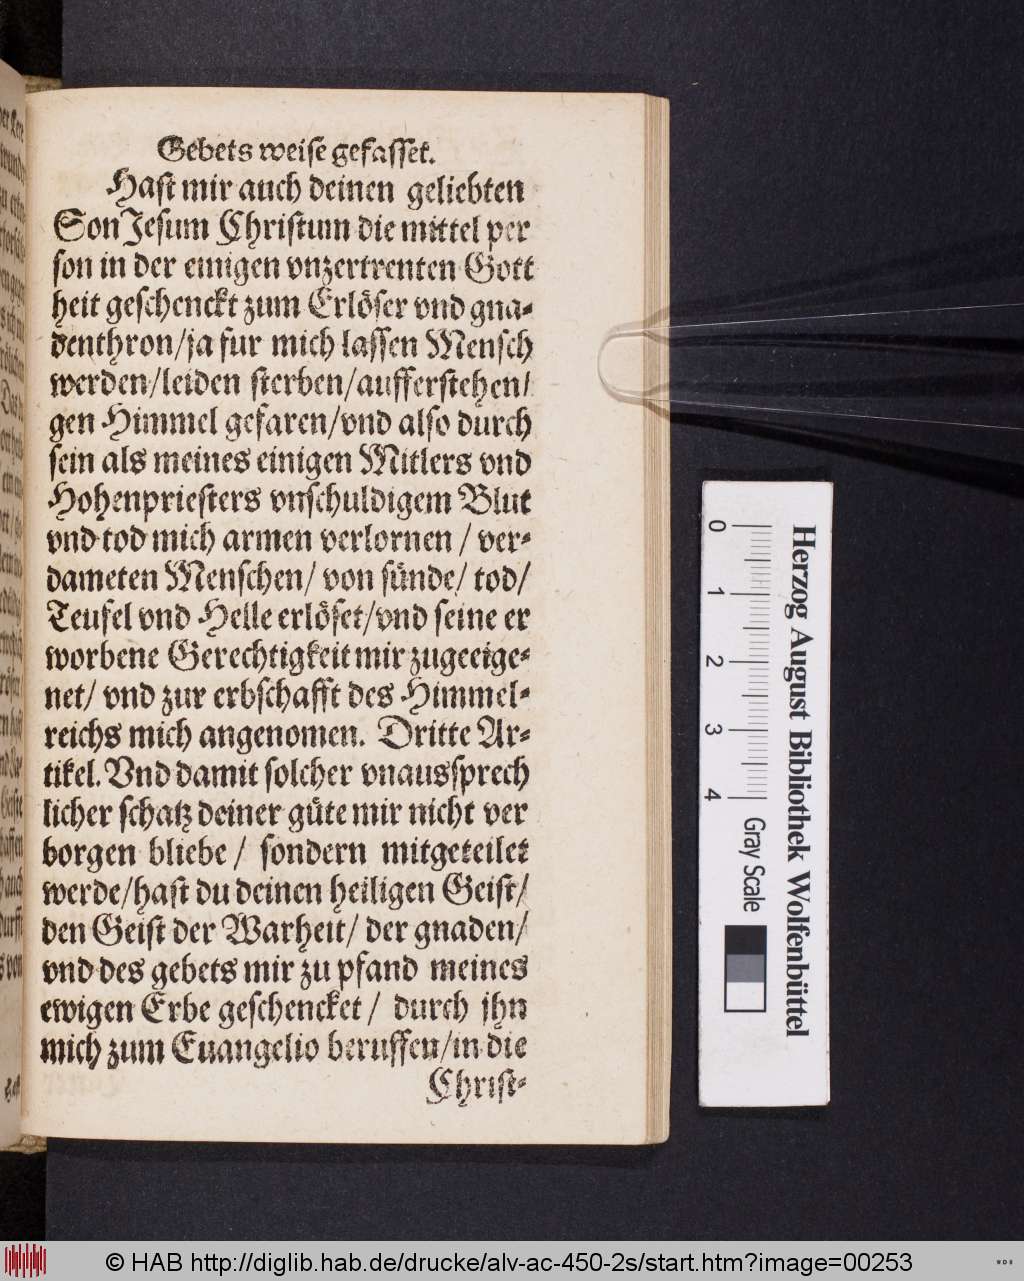 Gebets weise gefasset.
Hast mir auch deinen geliebten
Son Jesum Christum die mittel per
son in der einigen vnzertrenten Gott
heit geschenckt zum Erlöser vnd gna-
denthron/ja fur mich lassen Mensch
werden/leiden sterben/aufferstehen/
gen Himmel gefaren/vnd also durch
sein als meines einigen Mitlers vnd
Hohenpriesters vnschuldigem Blut
vnd tod mich armen verlornen / ver-
dameten Menschen/ von sünde/ tod/
Teufel vnd Helle erlöset/vnd seine er
worbene Gerechtigkeit mir zugeeige-
net/ vnd zur erbschafft des Himmel-
reichs mich angenomen. Dritte Ar-
tikel. Vnd damit solcher vnaussprech
licher schatz deiner güte mir nicht ver
borgen bliebe / sondern mitgeteilet
werde/hast du deinen heiligen Geist/
den Geist der Warheit/ der gnaden/
vnd des gebets mir zu pfand meines
ewigen Erbe geschencket / durch jhn
mich zum Euangelio beruffen/in die
Christ-
0 1 2 3 4 Gray Scale
Herzog August Bibliothek Wolfenbüttel
© HAB http://diglib.hab.de/drucke/alv-ac-450-2s/start.htm?image=00253